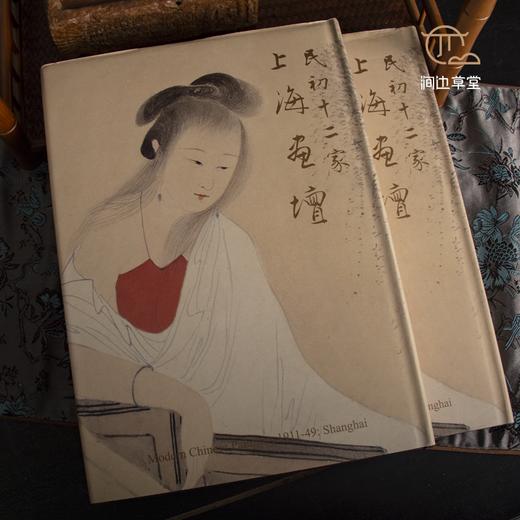 澗边草堂
民初十二家
上海画壇
民初十二家
上海画壇
Modern Chinese Pa 1911-49: Shanghai
nghai